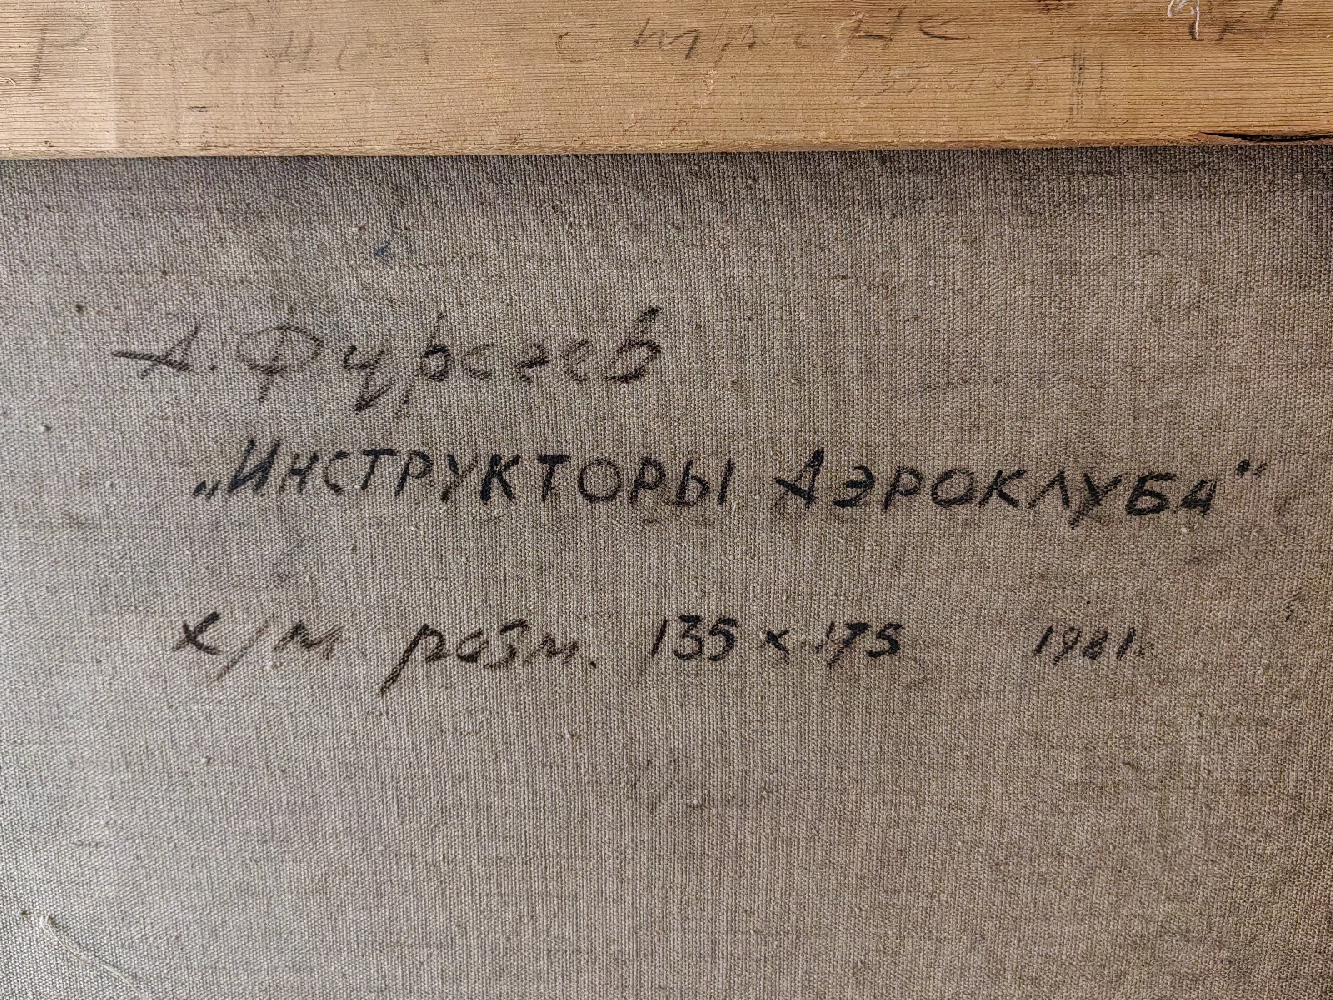 А. Фурсеев
„Инструкторы Аэроклуба“
х/м разм. 135 х 175 1981.